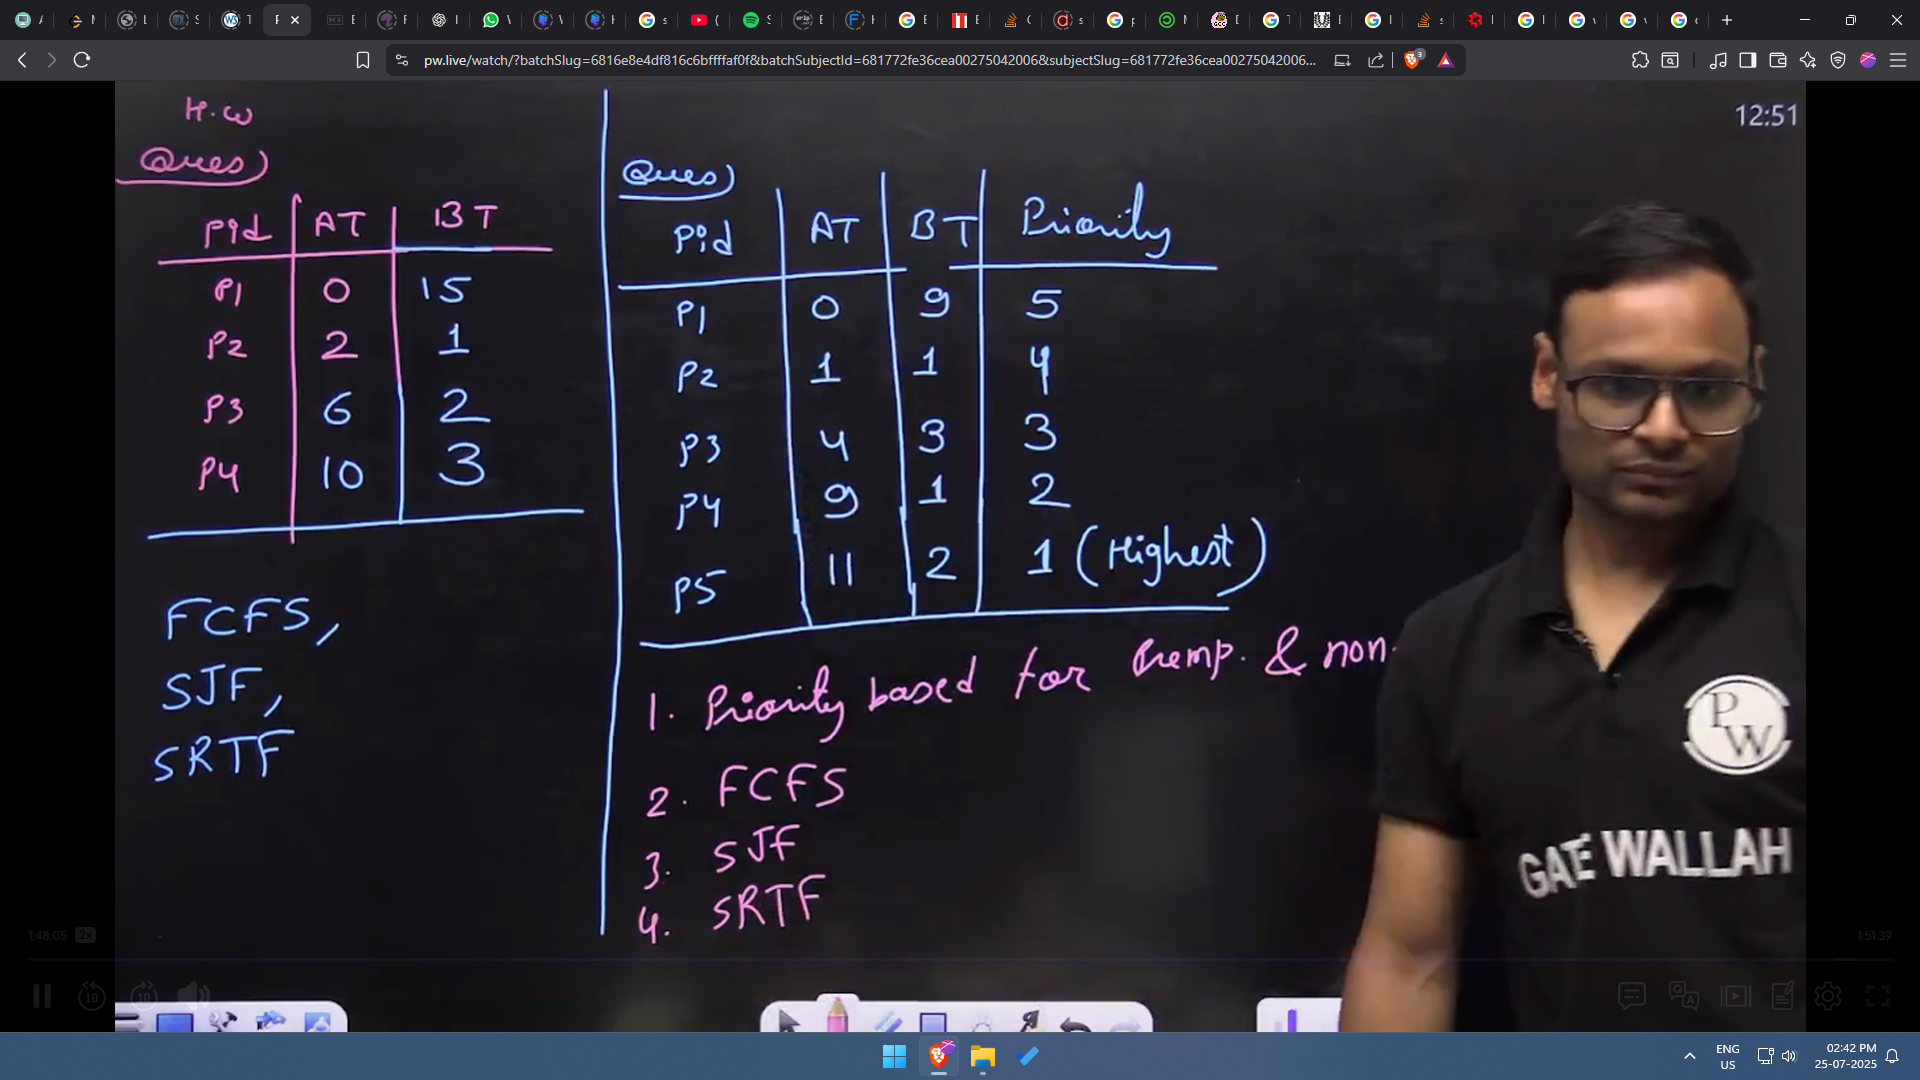 pw.live/watch/?batchSlug=6816e8e4df816c6bffffaf0f&batchSubjectId=681772fe36cea00275042006&subjectSlug=681772fe36cea00275042006...
3
12:51
H.W
Ques)
Pid AT BT
P1 0 15
P2 2 1
P3 6 2
P4 10 3
FCFS,
SJF,
SRTF
Ques)
Pid AT BT Priority
P1 0 9 5
P2 1 1 4
P3 4 3 3
P4 9 1 2
P5 11 2 1 (Highest)
1. Priority based for Premp. & non.
2. FCFS
3. SJF
4. SRTF
PW
GATE WALLAH
1:48:05 2x
1:51:39
10 10
ENG
US
02:42 PM
25-07-2025